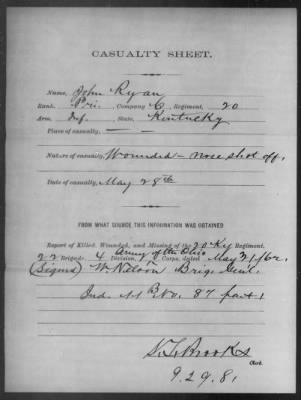 CASUALTY SHEET.
Name, John Ryan
Rank, Pri. Company C, Regiment, 20
Arm, Inf. State, Kentucky
Place of casualty,
Nature of casualty, Wounded – nose shot off.
Date of casualty, May 28th
FROM WHAT SOURCE THIS INFORMATION WAS OBTAINED
Report of Killed, Wounded, and Missing of the 20 Ky Regiment,
Army of the Ohio
22 Brigade, 4 Division, Corps, dated May 31/62,
(Signed) W. Nelson Brig. Genl.
87 part 1
S. T. Brooks
Clerk.
9.29.81